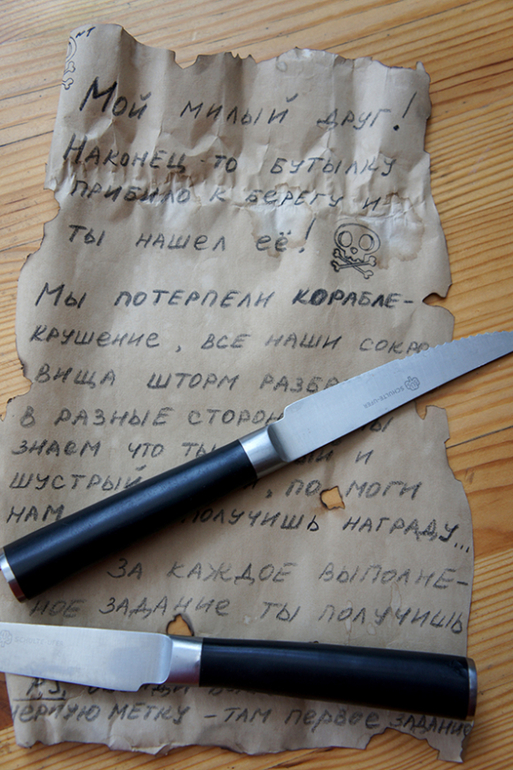 Мой милый друг!
Наконец-то бутылку
прибило к берегу и
ты нашел её!
Мы потерпели корабле-
крушение, все наши сокро-
вища шторм
в разные
знаем что ты и
шустрый, помоги
нам получишь награду...
За каждое выполне-
ное задание ты получишь
черную метку - там первое задание